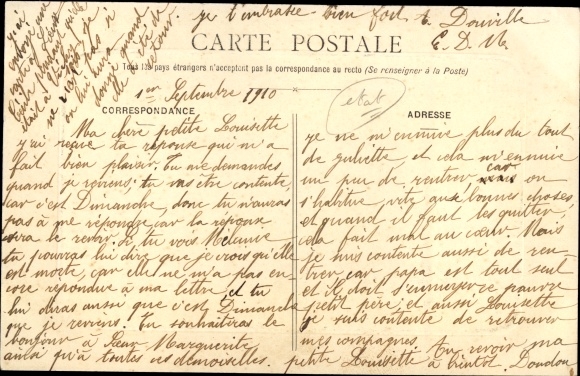 je t'embrasse bien fort E. Douville
E. D. M.
CARTE POSTALE
Tous les pays étrangers n'acceptent pas la correspondance au recto (Se renseigner à la Poste)
1er Septembre 1910
CORRESPONDANCE
Ma chère petite Louisette
j'ai reçue ta réponse qui m'a
fait bien plaisir. Tu me demandes
quand je reviens; tu vas être contente,
car c'est Dimanche, donc tu n'auras
pas à me répondre car la réponse
sera le revoir. Si tu vois Mélanie
tu pourras lui dire que je crois qu'elle
est morte, car elle ne m'a pas en-
core répondue à ma lettre, et tu
lui diras aussi que c'est Dimanche
que je reviens. Tu souhaiteras le
bonjour à Sœur Marguerite
ainsi qu'à toutes ces demoiselles.
état
ADRESSE
je ne m'ennuie plus du tout
de juliette, et cela m'ennuie
un peu de rentrer, car on
s'habitue vite aux bonnes choses,
et quand il faut les quitter,
cela fait mal au cœur. Mais
je suis contente aussi de ren-
trer car papa est tout seul
et il doit s'ennuyer ce pauvre
petit père, et aussi Louisette
je suis contente de retrouver
mes compagnes. Au revoir ma
petite Louisette à bientôt Doudou